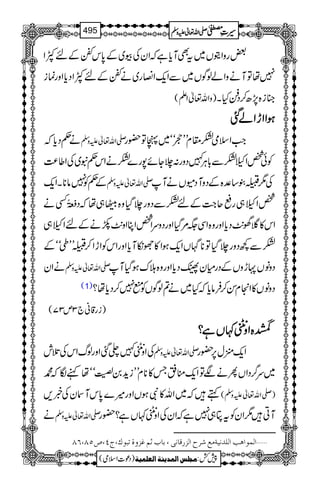 سیرتِ مصطفیٰ صلی اللہ تعالیٰ علیہ وسلم
495
بعض روایتوں میں یہ بھی آیا ہے کہ ان کی بیوی کے پاس کفن کے لئے کپڑا
نہیں تھا تو آنے والے لوگوں میں سے ایک انصاری نے کفن کے لئے کپڑا دیا اور نماز
جنازہ پڑھ کر دفن کیا۔ (واللہ تعالیٰ اعلم)
ہوا اڑا لے گئی
جب اسلامی لشکر مقام "حجر" میں پہنچا تو حضور صلی اللہ تعالیٰ علیہ وسلم نے حکم دیا کہ
کوئی شخص اکیلا لشکر سے باہر کہیں دور نہ چلا جائے پورے لشکر نے اس حکم نبوی کی اطاعت
کی مگر قبیلہ بنو ساعدہ کے دو آدمیوں نے آپ صلی اللہ تعالیٰ علیہ وسلم کے حکم کو نہیں مانا۔ ایک
شخص اکیلا ہی رفع حاجت کے لئے لشکر سے دور چلا گیا وہ بیٹھا ہی تھا کہ دفعۃً کسی نے
اس کا گلا گھونٹ دیا اور وہ اسی جگہ مر گیا اور دوسرا شخص اپنا اونٹ پکڑنے کے لئے اکیلا ہی
لشکر سے کچھ دور چلا گیا تو ناگہاں ایک ہوا کا جھونکا آیا اور اس کو اڑا کر قبیلہ "طی" کے
دونوں پہاڑوں کے درمیان پھینک دیا اور وہ ہلاک ہو گیا آپ صلی اللہ تعالیٰ علیہ وسلم نے ان
دونوں کا انجام سن کر فرمایا کہ کیا میں نے تم لوگوں کو منع نہیں کر دیا تھا؟ (1)
(زرقانی ج۳ ص۷۳)
گمشدہ اونٹنی کہاں ہے؟
ایک منزل پر حضور صلی اللہ تعالیٰ علیہ وسلم کی اونٹنی کہیں چلی گئی اور لوگ اس کی تلاش
میں سرگرداں پھرنے لگے تو ایک منافق جس کا نام "زید بن لصیت" تھا کہنے لگا کہ محمد
(صلی اللہ تعالیٰ علیہ وسلم) کہتے ہیں کہ میں اللہ کا نبی ہوں اور میرے پاس آسمان کی خبریں
آتی ہیں مگر ان کو یہ پتا ہی نہیں ہے کہ ان کی اونٹنی کہاں ہے؟ حضور صلی اللہ تعالیٰ علیہ وسلم نے
المواهب اللدنية مع شرح الزرقانی، باب ثم غزوة تبوك، ج٤، ص٨٥، ٨٦
پیش کش: مجلس المدینۃ العلمیۃ (دعوت اسلامی)